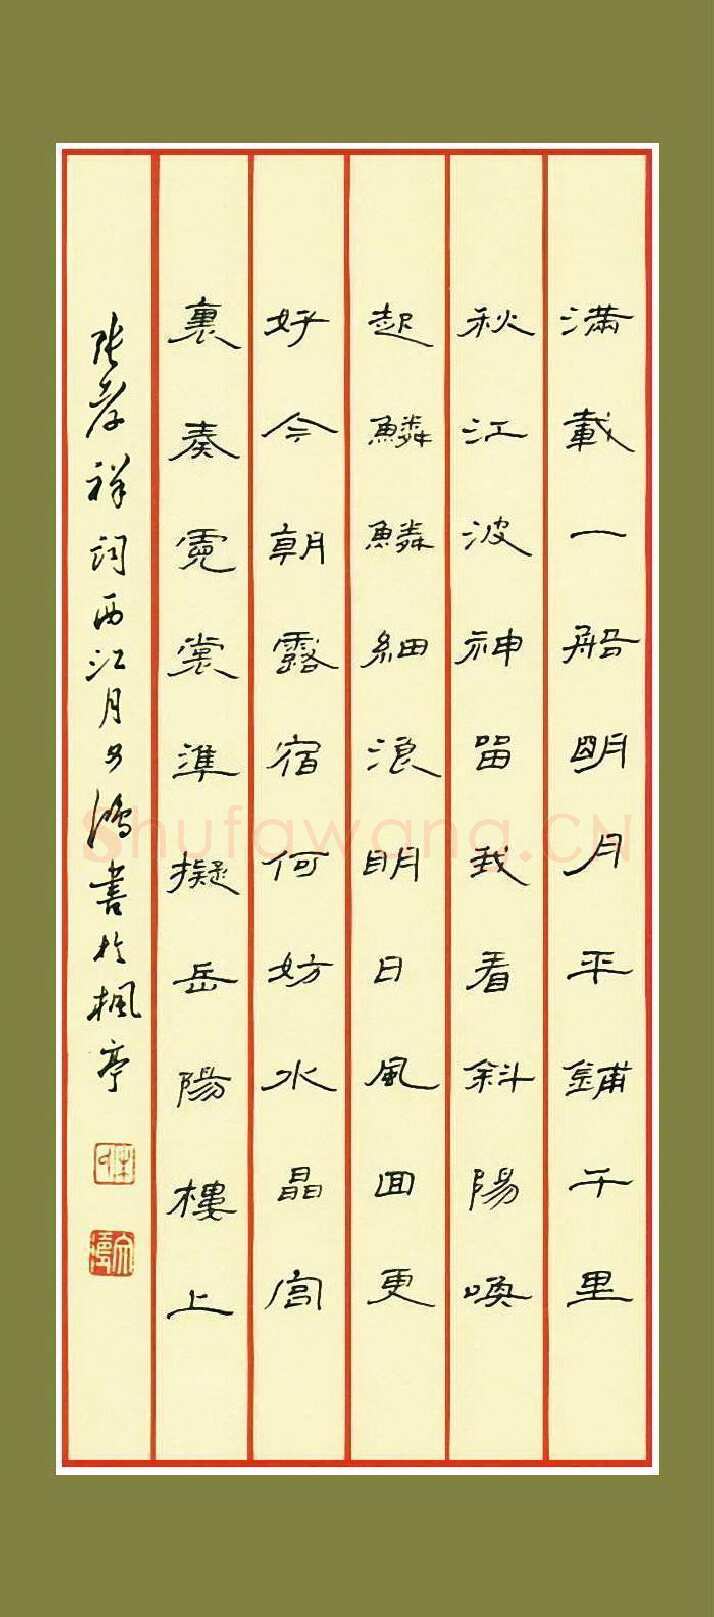 満載一船明月平鋪千里
秋江波神留我看斜陽喚
起鱗鱗細浪明日風回更
好今朝露宿何妨水晶宮
裏奏霓裳準擬岳陽樓上
张孝祥词西江月
鴻書於楓亭
Shufawang.CN